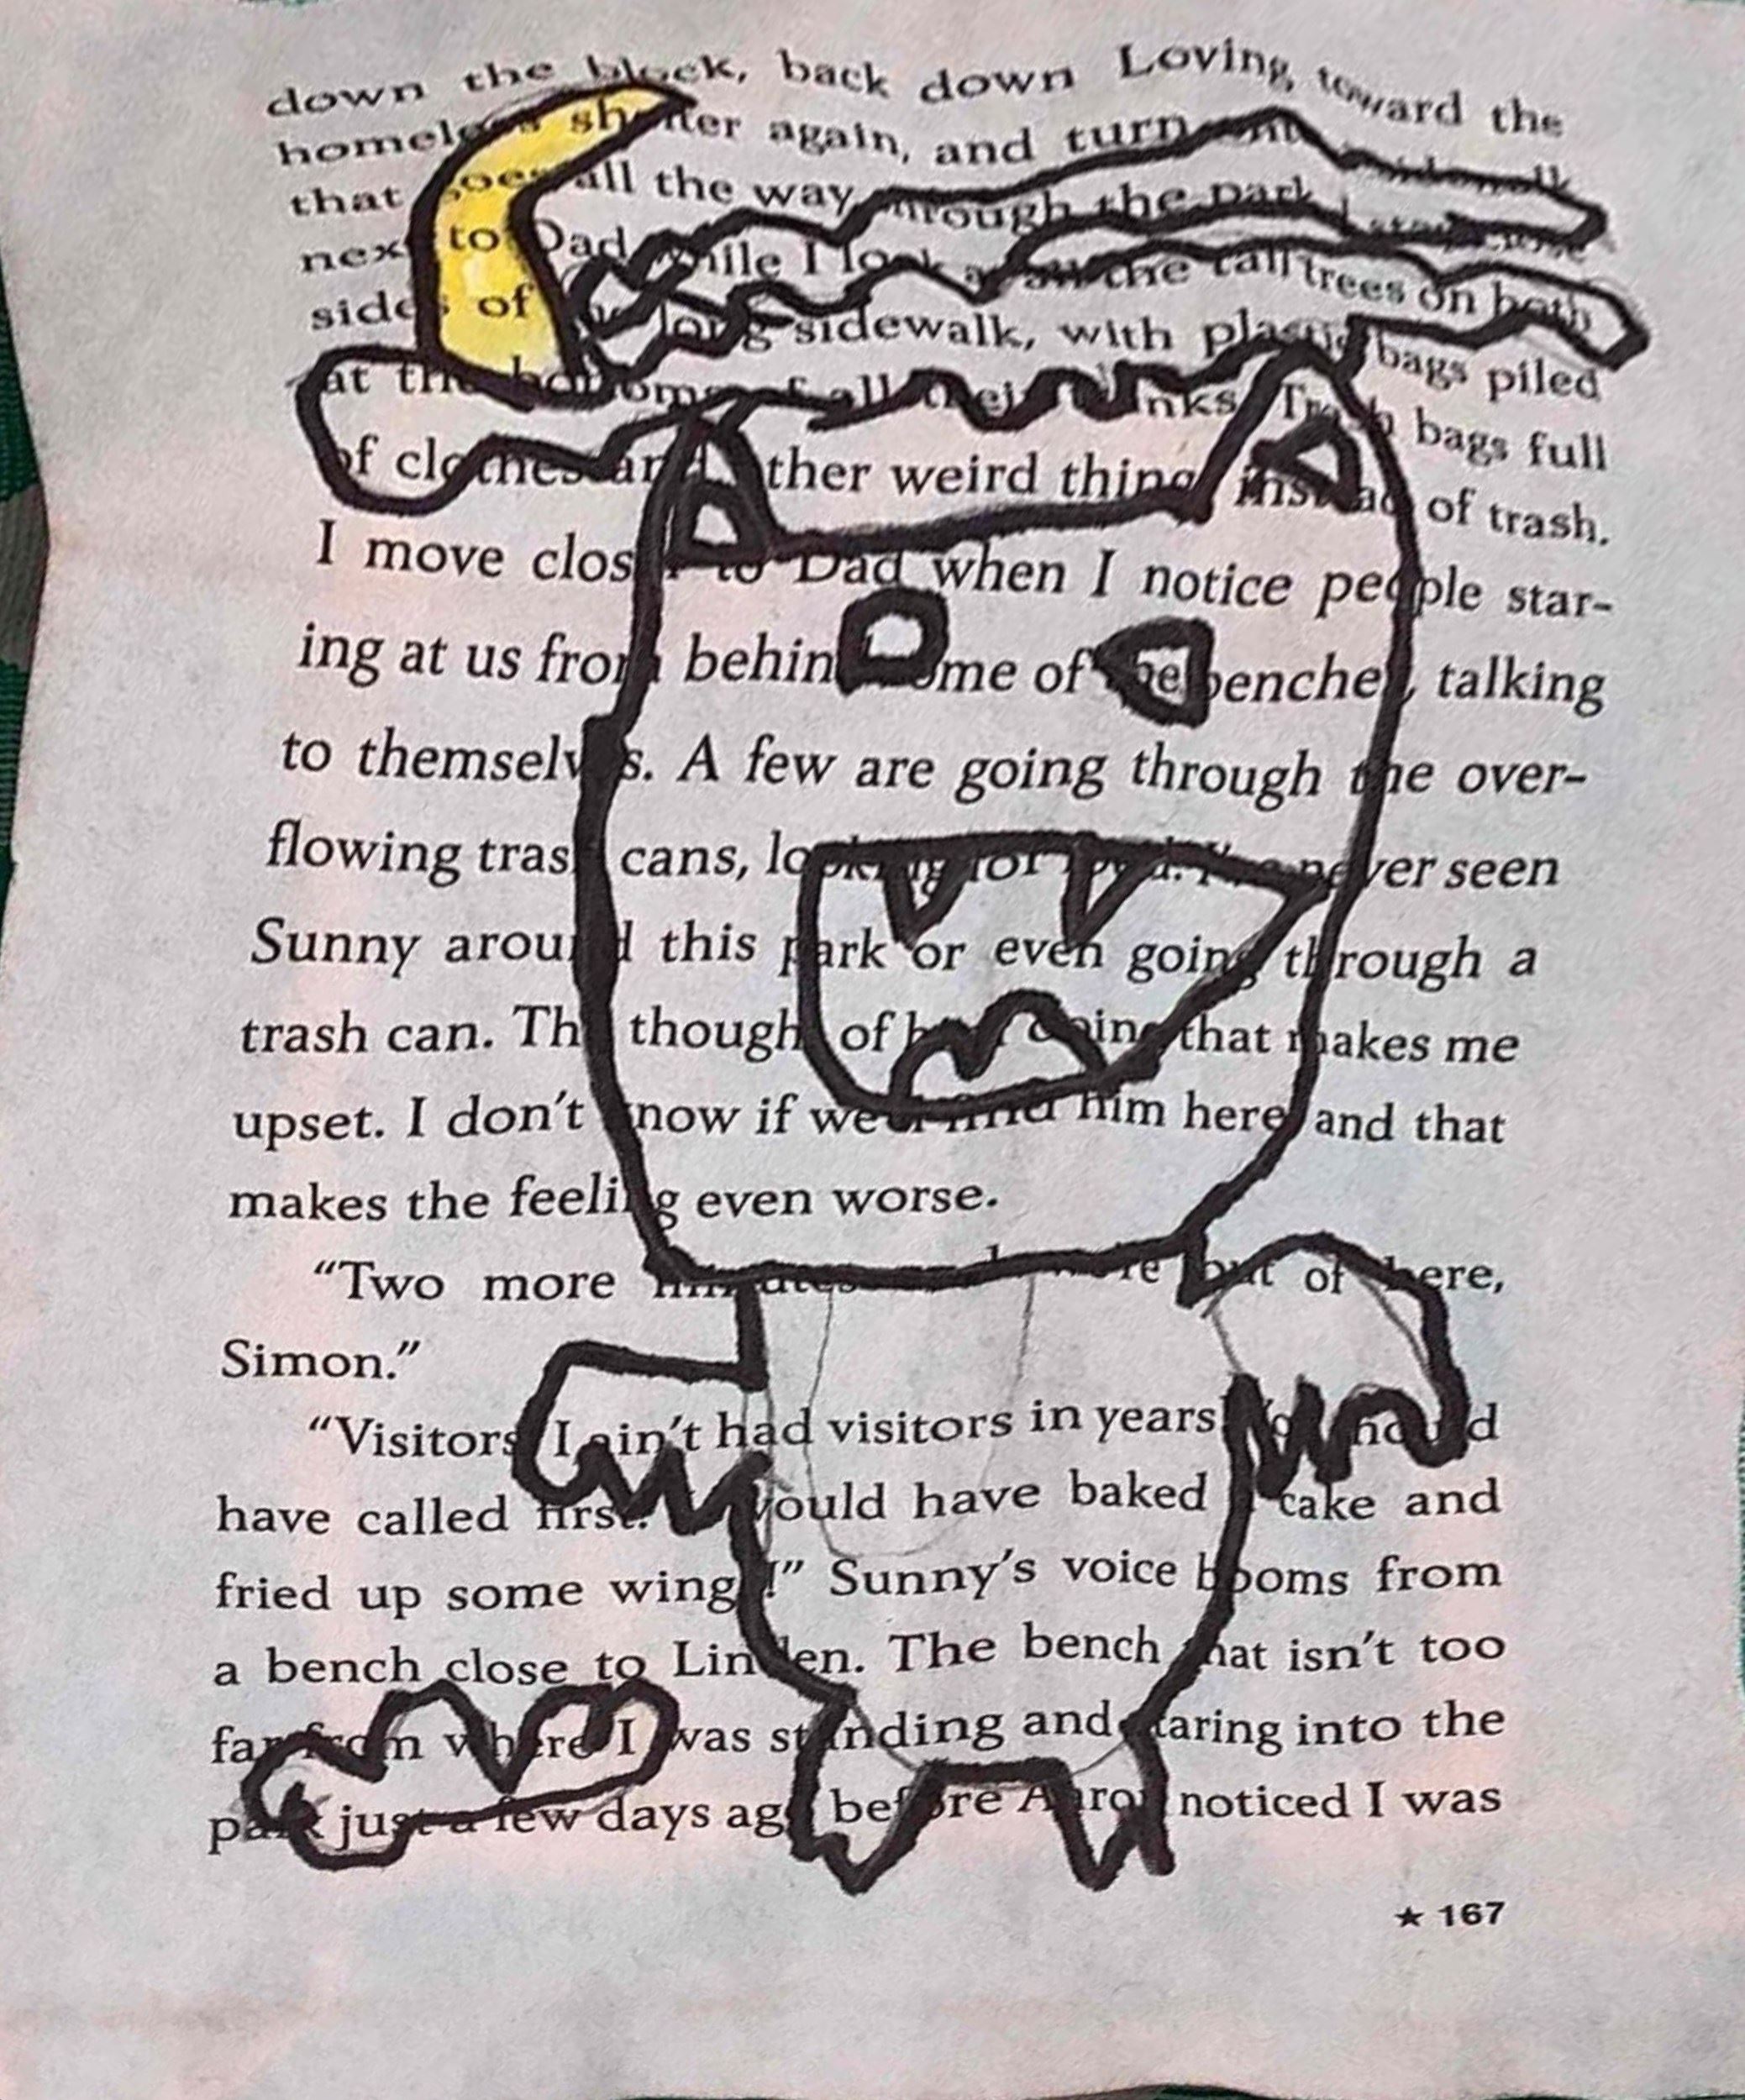 down the block, back down Loving, toward the
homeless shelter again, and turn onto sidewalk
that goes all the way through the park. I stay close
next to Dad while I look at all the tall trees on both
sides of the long sidewalk, with plastic bags piled
at the bottoms of all their trunks. Trash bags full
of clothes and other weird things instead of trash.
I move closer to Dad when I notice people star-
ing at us from behind some of the benches, talking
to themselves. A few are going through the over-
flowing trash cans, looking for food. I've never seen
Sunny around this park or even going through a
trash can. The thought of him doing that makes me
upset. I don't know if we'll find him here and that
makes the feeling even worse.
“Two more minutes and we're out of here,
Simon.”
“Visitors! I ain't had visitors in years! You should
have called first. I would have baked a cake and
fried up some wings!” Sunny's voice booms from
a bench close to Linden. The bench that isn't too
far from where I was standing and staring into the
park just a few days ago before Aaron noticed I was
★ 167